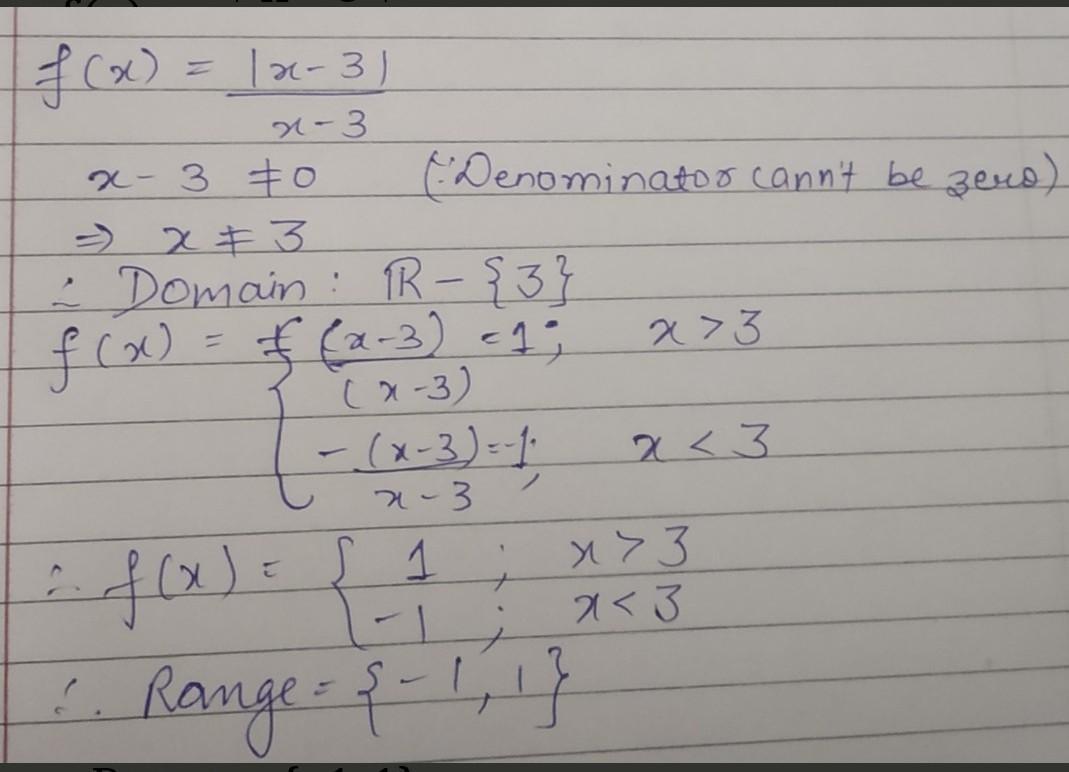 f(x) = |x-3|
x-3
x-3 ≠0 (∵Denominator cann't be zero)
⇒ x ≠ 3
∴ Domain : ℝ - {3}
f(x) = { (x-3) =1; x>3
(x-3)
-(x-3)=-1; x<3
x-3
∴ f(x) = { 1 ; x>3
-1 ; x<3
∴ Range = {-1, 1}